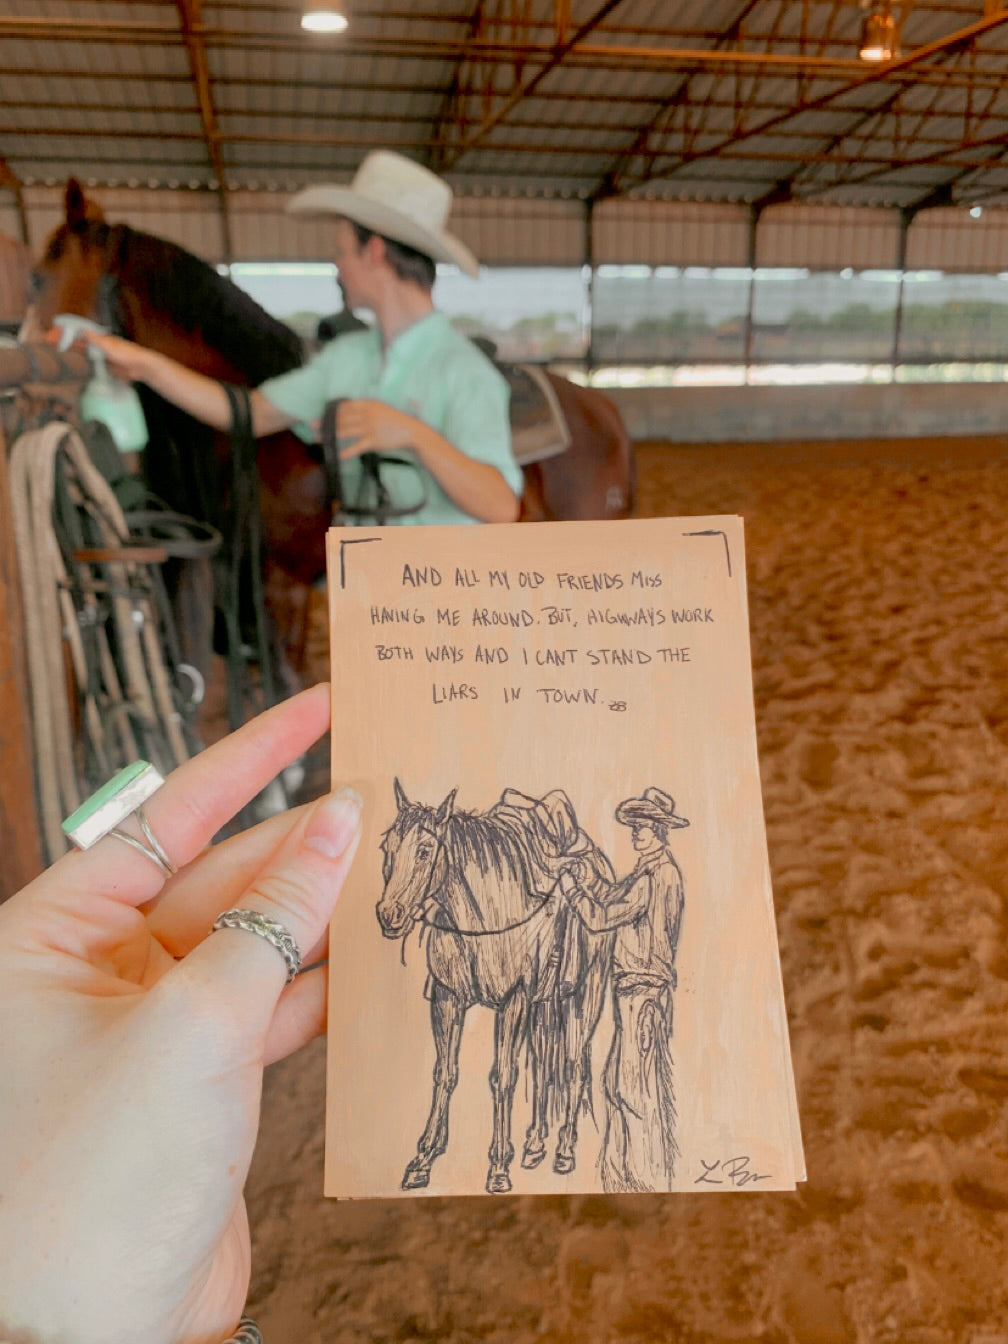 AND ALL MY OLD FRIENDS MISS
HAVING ME AROUND. BUT, HIGHWAYS WORK
BOTH WAYS AND I CANT STAND THE
LIARS IN TOWN. ZB